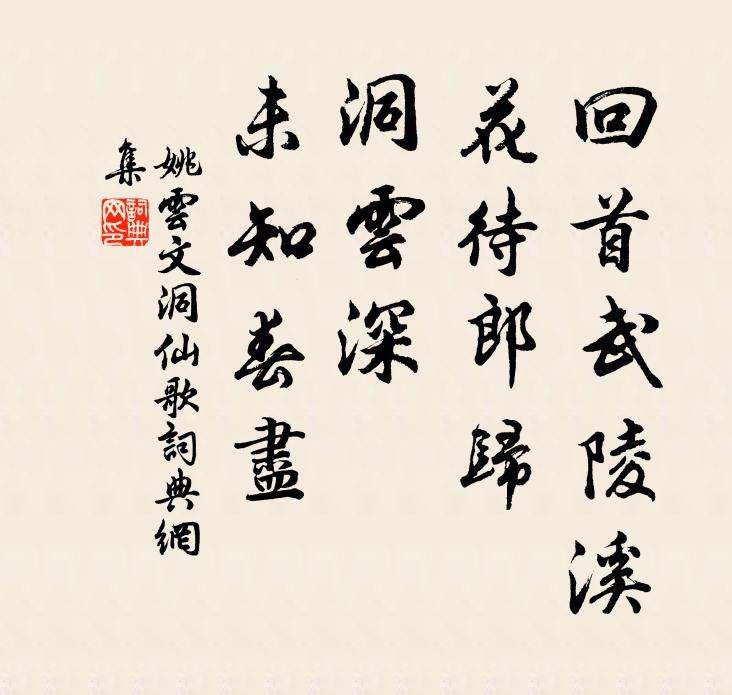 回首武陵溪
花待郎歸
洞雲深
未知春盡
姚雲文洞仙歌詞典網
集
詞典
网印